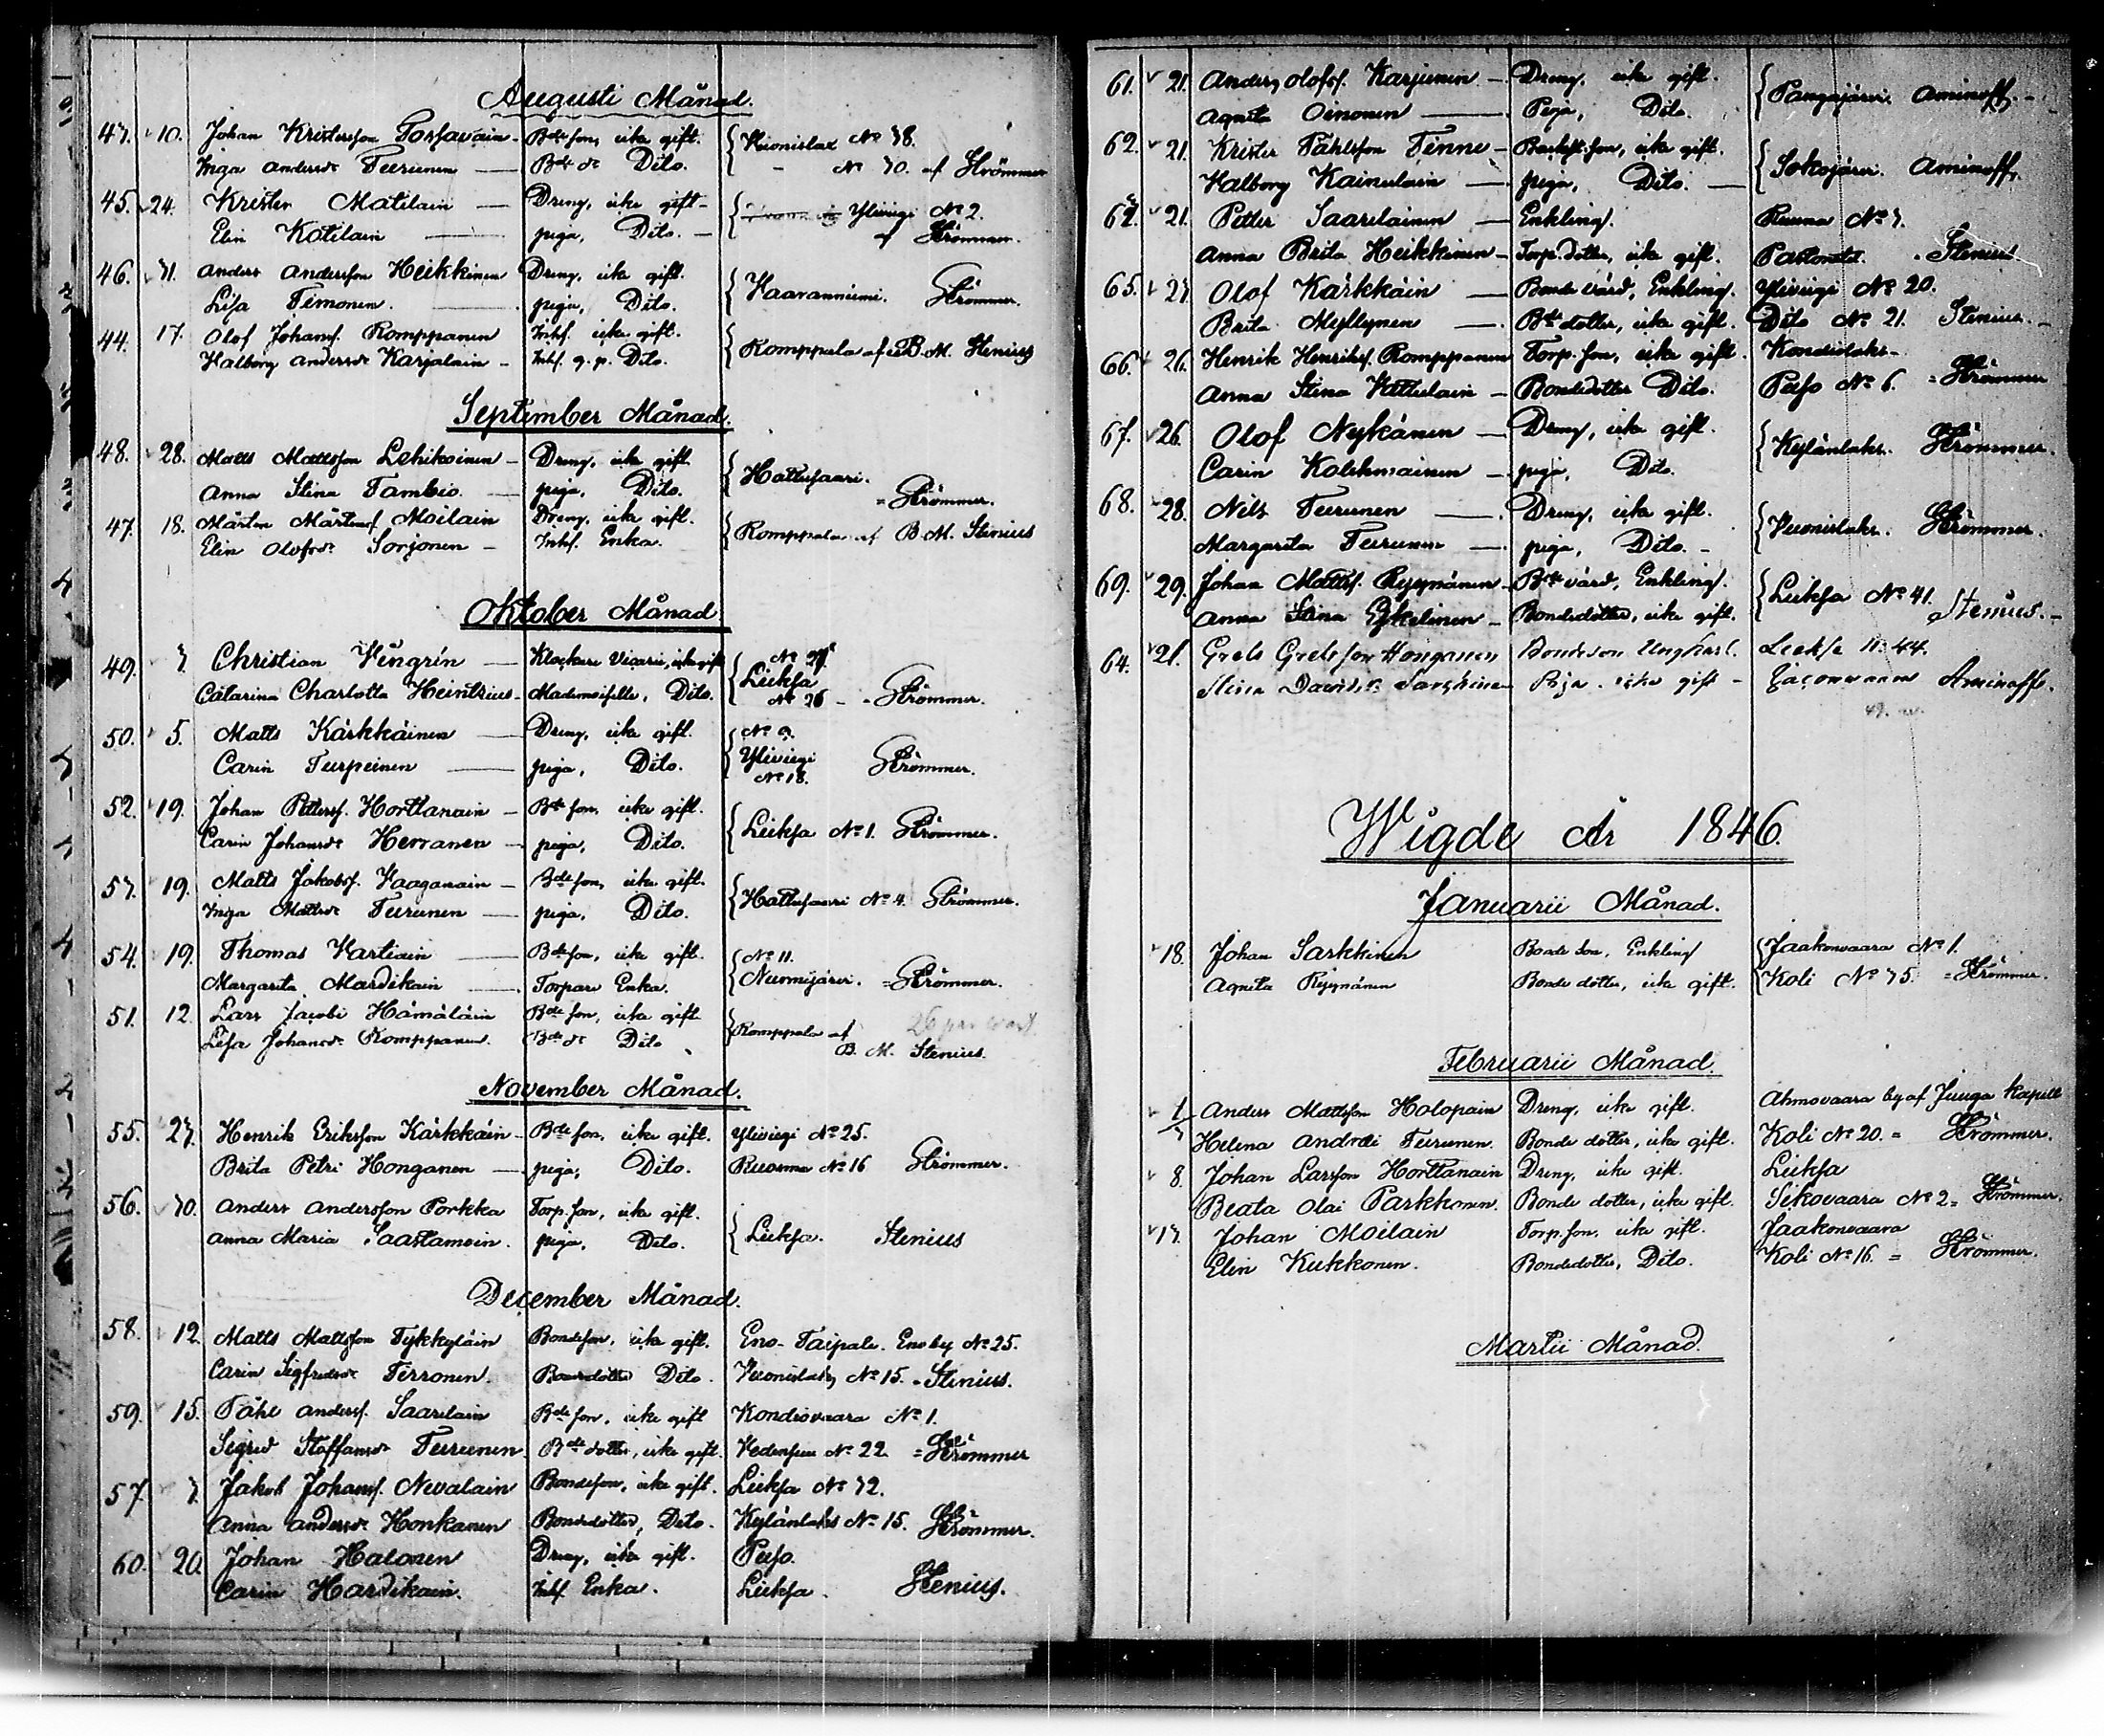 Augusti Månad.
43. 10. Johan Kristersson Torsavain - Bde son, icke gift. { Vuonislax No 38.
Inga Andersdr Teerunen — Bde dr Dito. - No 30. af Strömmer
45. 24. Krister Matilain — Dreng, icke gift - { Ylivigi No 2.
Elin Kotilain — piga, Dito. — af Strömmer.
46. 31. Anders Andersson Heikkinen Dreng, icke gift. { Vaaranniemi. Strömmer.
Lisa Timonen. — piga, Dito.
44. 17. Olof Johans. Romppanen Inhs. icke gift. { Romppala af B. M. Stenius
Valborg Andersdr Karjalain - Inhs. q. p. Dito.
September Månad.
48. 28. Matts Mattsson Lehikoinen - Dreng, icke gift { Hattusaari.
Anna Stina Tambio. — piga, Dito. = Strömmer.
47. 18. Mårten Mårtens. Moilain Dreng, icke gift. { Romppala af B. M. Stenius
Elin Olofsdr Sorjonen - Inhs. Enka.
Oktober Månad
49. 3 Christian Wengrin — Klockare Vicarie, icke gift { No 27
Lieksa
Catarina Charlotta Heintzius - Mademoiselle, Dito. No 26 - = Strömmer.
50. 5. Matts Kärkkäinen — Dreng, icke gift. { No 9.
Carin Turpeinen — piga, Dito. Ylivigi No 18. Strömmer.
52. 19. Johan Petterss. Horttanain - Bde son, icke gift. { Lieksa No 1. Strömmer.
Carin Johansdr Herranen - piga, Dito.
53. 19. Matts Jakobs. Vaaganain - Bde son, icke gift. { Hattusaari No 4. Strömmer.
Inga Mattsdr Teerunen — piga, Dito.
54. 19. Thomas Vartiain — Bde son, icke gift. { No 11.
Margareta Mardikain — Torpare Enka. Nurmijärvi. = Strömmer.
51. 12. Lars Jacobi Hämäläin Bde son, icke gift { Romppala af
Lisa Johansdr Romppanen. Bde dr Dito B. M. Stenius.
26 par
November Månad.
55. 23. Henrik Eriksson Kärkkäin - Bde son, icke gift. Ylivigi No 25.
Brita Petri Honganen — piga, Dito. Ruunna No 16 Strömmer.
56. 30. Anders Andersson Porkka Torp. son, icke gift. { Lieksa. Stenius
Anna Maria Saastamoin. piga, Dito.
December Månad.
58. 12. Matts Mattsson Tykkyläin Bondeson, icke gift. Eno - Taipale. Eno by No 25.
Carin Sigfredsdr Terronen. Bondedotter Dito. Vuonislax No 15. - Stenius.
59. 15. Påhl Anderss. Saarelain Bde son, icke gift Kondiovaara No 1.
Sigrid Staffansdr Teerunen Bde dotter, icke gift. Vedensuu No 22 = Strömmer
57. 3. Jakob Johanss. Nevalain Bondeson, icke gift. Lieksa No 32.
Anna Andersdr Honkanen Bondedotter, Dito. Kylänlaks No 15. Strömmer.
60. 20. Johan Halonen Dreng, icke gift. Pielis.
Carin Hardikain. Inhs Enka. Lieksa. Stenius.
61. 21. Anders Olofss. Karjunen - Dreng, icke gift. { Pangajärvi. Aminoff. -
Agneta Oinonen — Piga, Dito.
62. 21. Krister Påhlsson Tenne - Backst. son, icke gift. { Sokojärvi. Aminoff.
Valborg Kainulain — piga, Dito. —
63. 21. Petter Saarelainen — Enkling. Ruuna No 3.
Anna Brita Heikkinen - Torp. dotter, icke gift. Pastoratet. - Stenius
65. 23. Olof Kärkkäin — Bonde värd, Enkling. Ylivigi No 20.
Brita Myllynen — Bde dotter, icke gift. Dito No 21. Stenius. -
66. 26. Henrik Henrikss. Romppanen Torp. son, icke gift. Kondiolaks -
Anna Stina Kettulain - Bondedotter Dito. Pielis No 6. = Strömmer
67. 26. Olof Nykänen — Dreng, icke gift. { Kylänlaks. Strömmer.
Carin Kolehmainen — piga, Dito.
68. 28. Nils Teerunen — Dreng, icke gift. { Vuonislaks. Strömmer.
Margareta Teerunen — piga, Dito. -
69. 29. Johan Mattss. Ryynänen - Bde värd, Enkling. { Lieksa No 41. Stenius. -
Anna Stina Eskelinen - Bondedotter, icke gift.
64. 21. Grels Grelsson Honganen Bondeson Ungkarl. Lieksa No 44.
Stina Davidsdr Sarkkinen Piga. icke gift - Aminoff.
Wigde År 1846.
Januarii Månad.
18. Johan Sarkkinen Bonde Son, Enkling { Jaakonvaara No 1.
Agneta Ryynänen Bonde dotter, icke gift. Koli No 35. = Strömmer.
Februarii Månad.
1/3 Anders Mattsson Holopain Dreng, icke gift. Ahmovaara by af Juuga Kapell
Helena Andrae Teerunen. Bonde dotter, icke gift. Koli No 20. = Strömmer.
8. Johan Larsson Horttanain Dreng, icke gift. Lieksa
Beata Olai Parkkonen. Bonde dotter, icke gift. Sikovaara No 2 = Strömmer.
13. Johan Moilain Torp. son, icke gift. Jaakonvaara
Elin Kukkonen. Bondedotter, Dito. Koli No 16. = Strömmer.
Martii Månad.